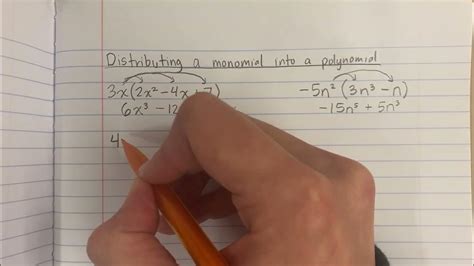 Distributing a monomial into a polynomial
3x(2x² - 4x + 7)
6x³ - 12
-5n²(3n³ - n)
-15n⁵ + 5n³
4